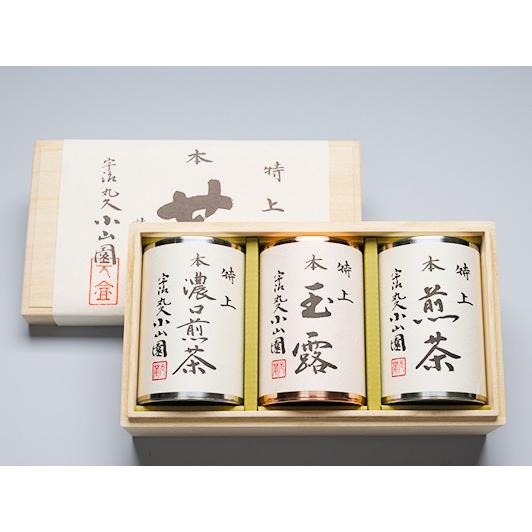 特上
本
茶
宇治丸久小山園
特上
本煎茶
宇治丸久小山園
特上
本玉露
宇治丸久小山園
特上
本濃口煎茶
宇治丸久小山園